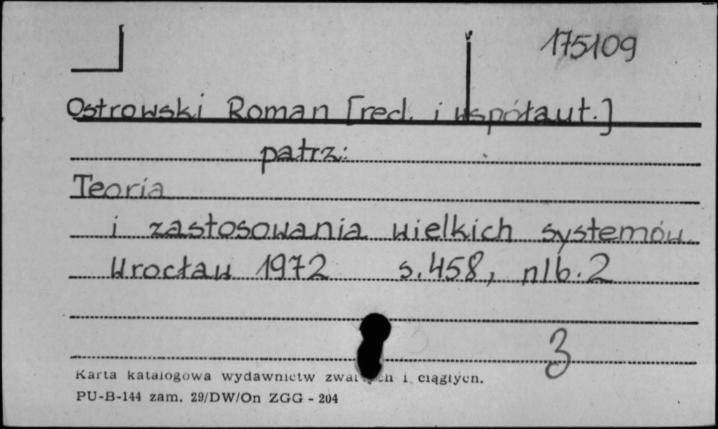 175109
Ostrowski Roman [red. i współaut.]
patrz:
Teoria
i zastosowania wielkich systemów.
Wrocław 1972 s. 458, nlb. 2
3
Karta katalogowa wydawnictw zwartych i ciągłych.
PU-B-144 zam. 29/DW/On ZGG - 204